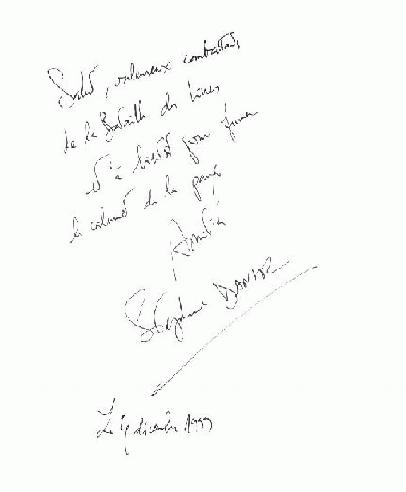 Salut, valeureux combattants
de la Bataille des livres
et à bientôt pour fumer
le calumet de la paix
Amitié
Stéphane DANIEL
Le décembre 1999